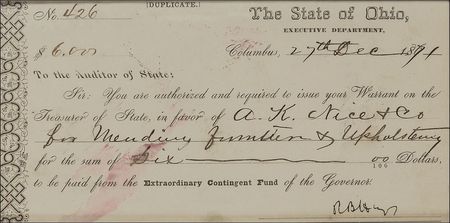 (DUPLICATE.)
No. 426
The State of Ohio,
EXECUTIVE DEPARTMENT,
$ 6.00
Columbus, 27th Dec 1871
To the Auditor of State:
Sir: You are authorized and required to issue your Warrant on the
Treasurer of State, in favor of A. K. Nice & Co
for Mending furniture & Upholstering
for the sum of Six 00/100 Dollars,
to be paid from the Extraordinary Contingent Fund of the Governor.